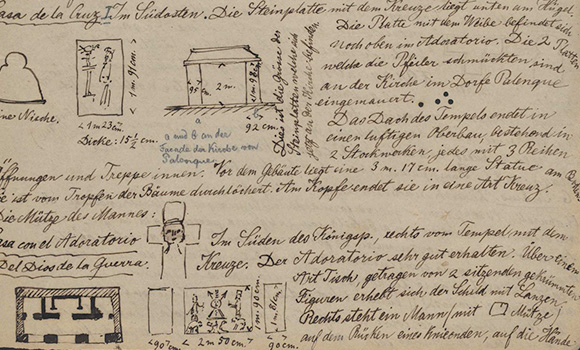 Casa de la Cruz I. Im Südosten. Die Steinplatte mit dem Kreuze liegt unten am Hügel.
Die Platte mit dem Weibe befindet sich
noch oben im Adoratorio. Die 2 Platten
welche die Pfeiler schmückten sind
an der Kirche im Dorfe Palenque
eingemauert.
Das Dach des Tempels endet in
einen luftigen Oberbau, bestehend in
2 Stockwerken, jedes mit 3 Reihen
Öffnungen und Treppe innen. Vor dem Gebäude liegt eine 3 m. 17 cm. lange Statue am
ist vom Tropfen der Bäume durchlöchert. Am Kopfe endet sie in eine Art Kreuz.
Die Mütze des Mannes:
eine Nische.
1 m. 91 cm.
1 m 23 cm.
Dicke: 15 1/2 cm.
2 m.
1 m. 98 cm.
92 cm.
a
b
a und b an der
Fassade der Kirche von
Palenque
Dies ist die Grösse der
Steinplatten welche sich
an der Kirche befinden
Casa con el Adoratorio
Del Dios de la Guerra.
Im Süden des Königsp., rechts vom Tempel mit dem
Kreuze. Der Adoratorio sehr gut erhalten. Über einen
Art Tisch, getragen von 2 sitzenden gekrümmten
Figuren erhebt sich der Schild mit Lanzen
Rechts steht ein Mann/mit Mütze/
auf dem Rücken eines Knieenden, auf die Hände
90
2 m 58 cm.
1 m 90 cm.
1 m 81 cm.
90 cm.